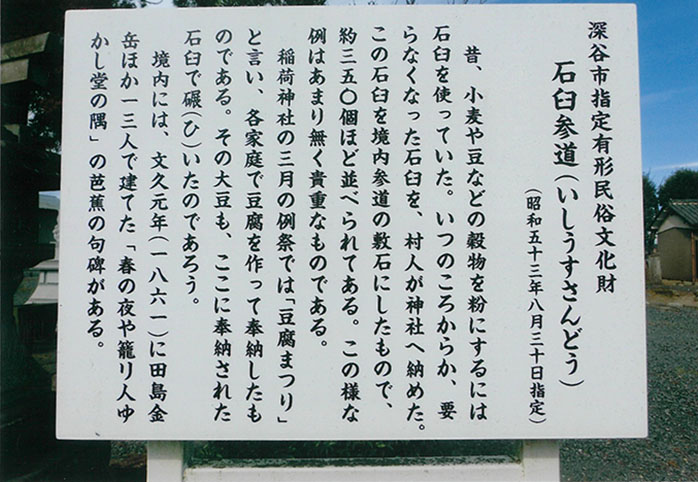 深谷市指定有形民俗文化財
石臼参道(いしうすさんどう)
(昭和五十三年八月三十日指定)
昔、小麦や豆などの穀物を粉にするには
石臼を使っていた。いつのころからか、要
らなくなった石臼を、村人が神社へ納めた。
この石臼を境内参道の敷石にしたもので、
約三五〇個ほど並べられてある。この様な
例はあまり無く貴重なものである。
稲荷神社の三月の例祭では「豆腐まつり」
と言い、各家庭で豆腐を作って奉納したも
のである。その大豆も、ここに奉納された
石臼で碾(ひ)いたのであろう。
境内には、文久元年(一八六一)に田島金
岳ほか一三人で建てた「春の夜や籠り人ゆ
かし堂の隅」の芭蕉の句碑がある。